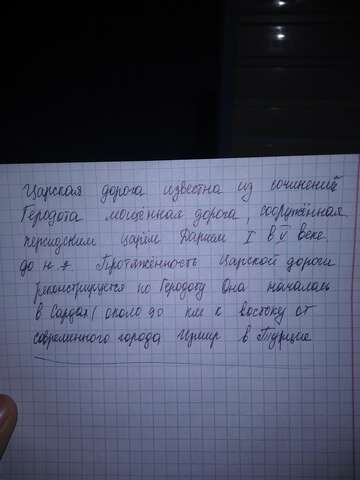 Царская дорога известна из сочинений
Геродота мощённая дорога, сооружённая
персидским царём Дарием I в V веке
до н.э. Протяжённость Царской дороги
реконструируется по Геродоту Она началась
в Сардах (около 90 км к востоку от
современного города Измир в Турции